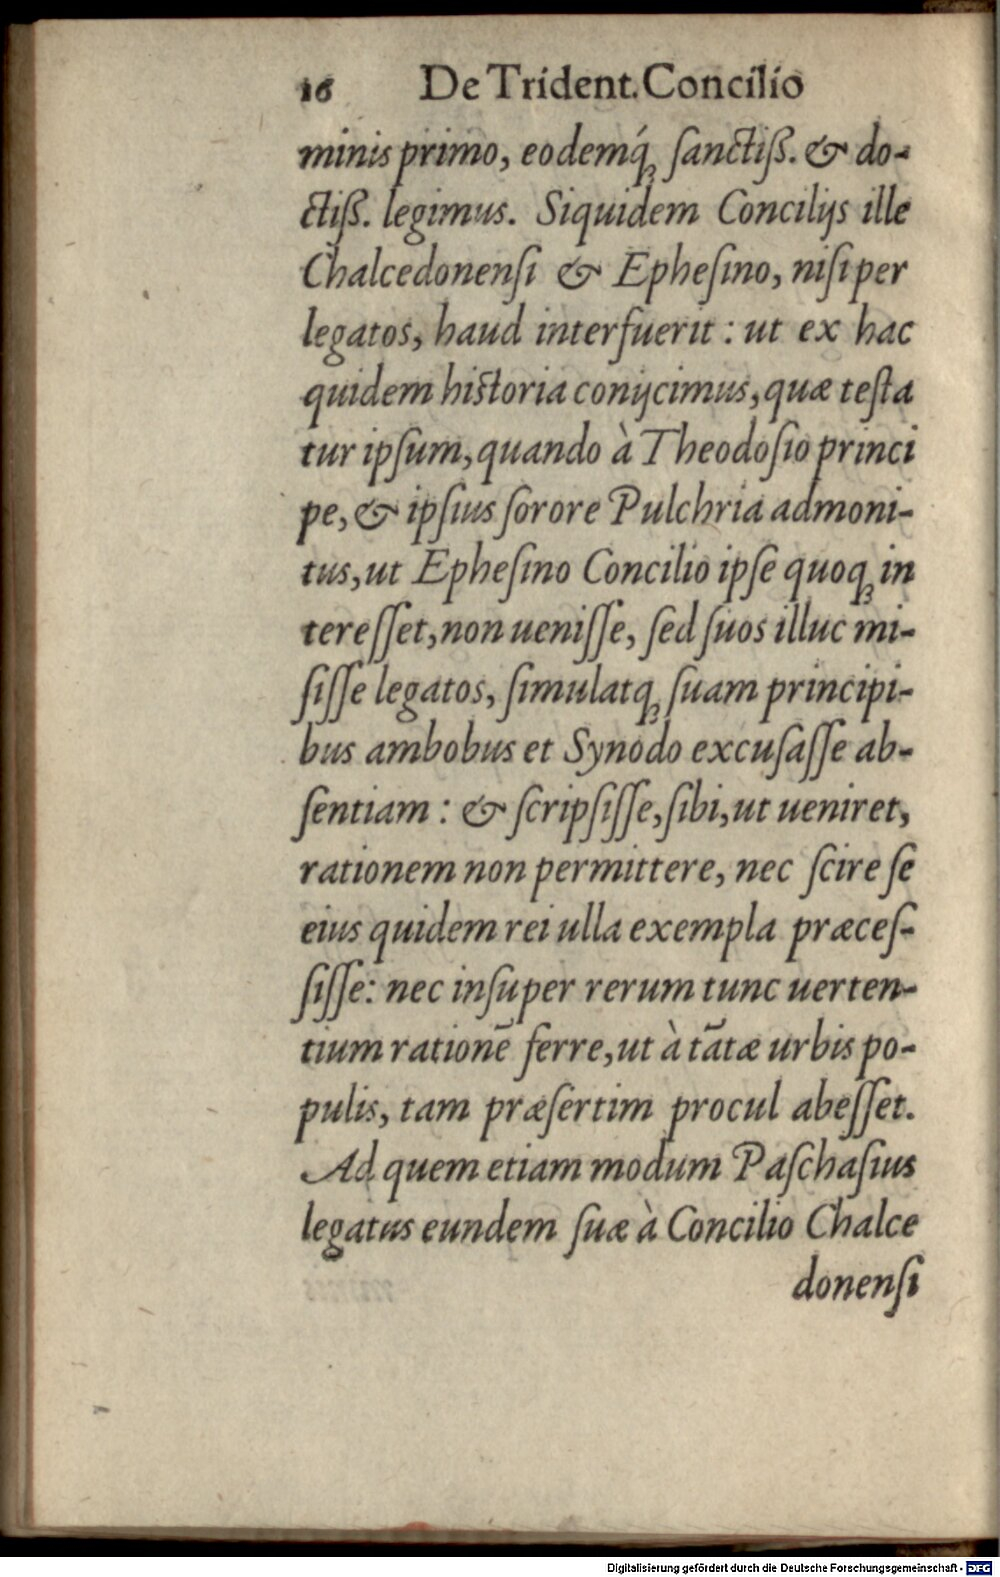 16 De Trident. Concilio
minis primo, eodemq́ꝫ ſanctiß. & do-
ctiß. legimus. Siquidem Concilijs ille
Chalcedonenſi & Epheſino, niſi per
legatos, haud interfuerit : ut ex hac
quidem hiſtoria conijcimus, quæ teſta
tur ipſum, quando à Theodoſio princi
pe, & ipſius ſorore Pulchria admoni-
tus, ut Epheſino Concilio ipſe quoqꝫ in
tereſſet, non ueniſſe, ſed ſuos illuc mi-
ſiſſe legatos, ſimulatqꝫ ſuam principi-
bus ambobus et Synodo excuſaſſe ab-
ſentiam : & ſcripſiſſe, ſibi, ut ueniret,
rationem non permittere, nec ſcire ſe
eius quidem rei ulla exempla præceſ-
ſiſſe: nec inſuper rerum tunc uerten-
tium rationē ferre, ut à tātæ urbis po-
pulis, tam præſertim procul abeſſet.
Ad quem etiam modum Paſchaſius
legatus eundem ſuæ à Concilio Chalce
donenſi
Digitalisierung gefördert durch die Deutsche Forschungsgemeinschaft - DFG